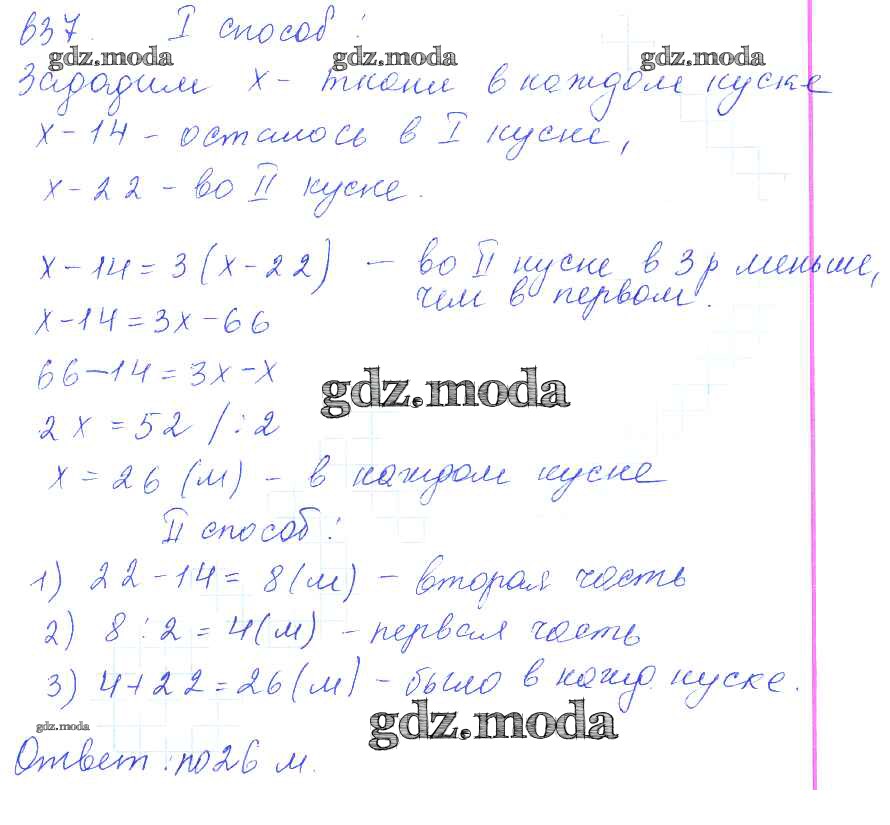 637. I способ:
gdz.moda gdz.moda gdz.moda
Зададим х - ткани в каждом куске
х-14 - осталось в I куске,
х-22 - во II куске.
х-14=3(х-22) - во II куске в 3 р меньше,
чем в первом.
х-14=3х-66
66-14=3х-х
gdz.moda
2х=52 /:2
х=26 (м) - в каждом куске
II способ:
1) 22-14=8(м) - вторая часть
2) 8:2=4(м) - первая часть
3) 4+22=26(м) - было в кажд. куске.
gdz.moda gdz.moda
Ответ: по 26 м.